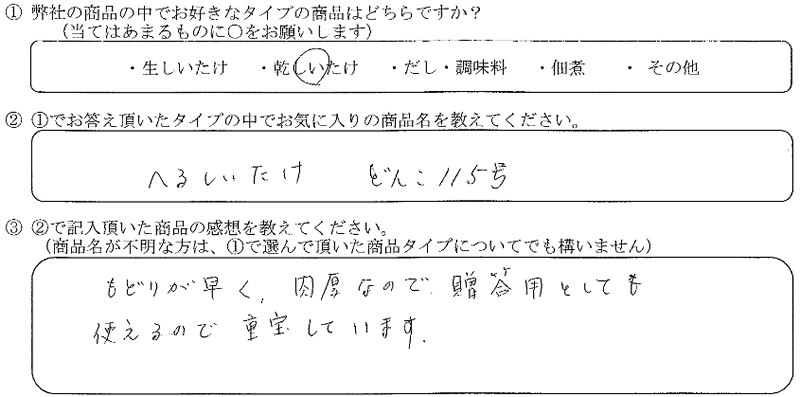 ① 弊社の商品の中でお好きなタイプの商品はどちらですか？
（当てはあまるものに○をお願いします）
・生しいたけ ・乾しいたけ ・だし・調味料 ・佃煮 ・ その他
② ①でお答え頂いたタイプの中でお気に入りの商品名を教えてください。
へるしいたけ どんこ115号
③ ②で記入頂いた商品の感想を教えてください。
（商品名が不明な方は、①で選んで頂いた商品タイプについてでも構いません）
もどりが早く、肉厚なので、贈答用としても
使えるので重宝しています。